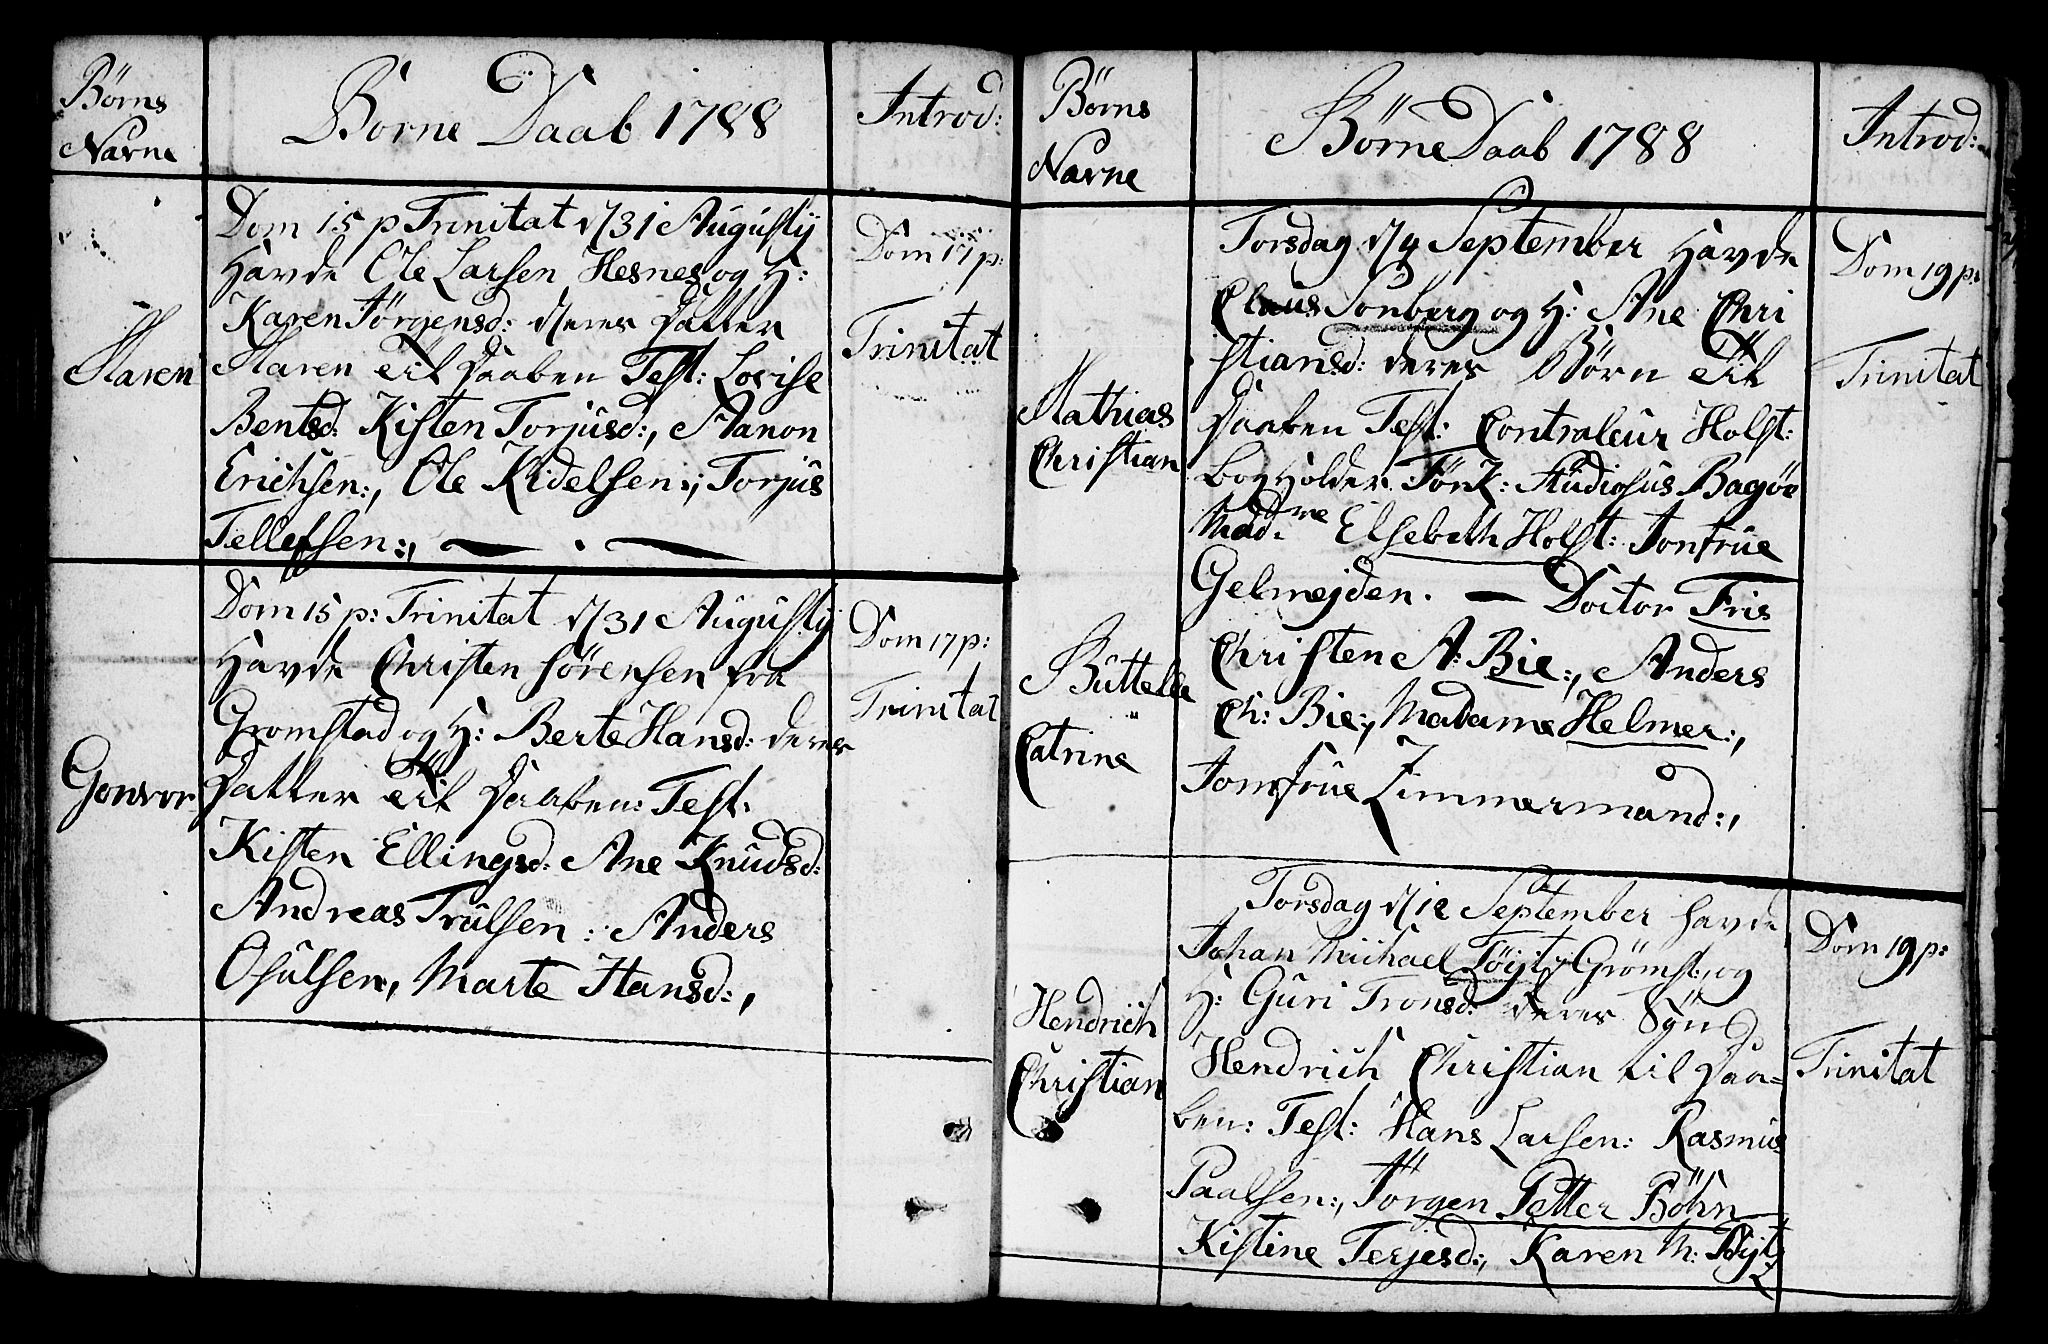 Börns
Navne
Börne Daab 1788
Introd:
Maren
Dom 15 p Trinitat d/31 Augustij
Havde Ole Larsen Hesnes og H:
Karen Jörgensd: deres Datter
Maren til Daaben Test: Lovise
Bentsd: Kisten Torjusd:, Aanon
Erichsen:, Ole Kidelsen:, Torjus
Tellefsen:,
Dom 17 p:
Trinitat
Gonvor
Dom 15 p: Trinitat d/31 Augustij
Havde Christen Sörensen fra
Gromstad og H: Berte Hansd: deres
Datter til Daaben: Test:
Kisten Ellingsd: Ane Knudsd:
Andreas Trulsen: Anders
Osulsen, Marte Hansd:,
Dom 17 p:
Trinitat
Börns
Navne
Börne Daab 1788
Introd:
Mathias
Christian
Büttelle
Catrine
Torsdag d/4 September Havde
Claus Sonberg og H: Ane Chri
stiansd: deres Börn til
Daaben Test: Contraleur Holst:
Bogholder Fönk: Studiosus Bagöe
Madme Elsebeth Holst: Jonfrue
Gelmejden. — Doctor Fris
Christen A: Bie:, Anders
Ch: Bie:, Madame Helmer:,
Jomfrue Zimmermand:,
Dom 19 p:
Trinitat
Hendrich
Christian
Torsdag d/12 September havde
Johan Michael Töijt Grömst:, og
H: Guri Tronsd: deres Sön
Hendrich Christian til Daa=
ben: Test: Hans Larsen: Rasmus
Paalsen:, Jörgen Petter Böhn
Kistine Terjesd:, Karen M: Töijt
Dom 19 p:
Trinitat